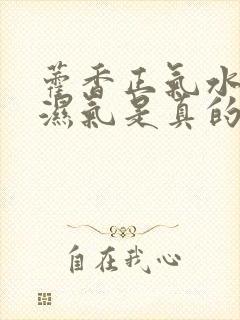 藿香正氣水
濕氣是真的
自在我心